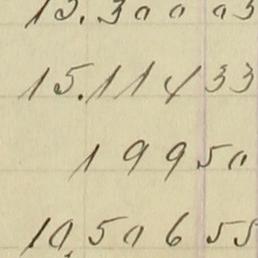 15.30003
15.11433
19950
10.50655